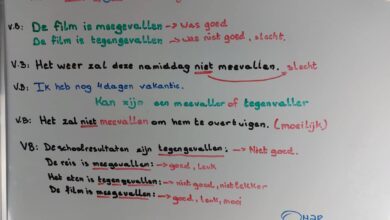 V.B: De film is meegevallen → was goed
De film is tegengevallen → was niet goed, slecht.
V.B: Het weer zal deze namiddag niet meevallen. slecht
V.B: Ik heb nog 4 dagen vakantie.
Kan zijn een meevaller of tegenvaller
V.B: Het zal niet meevallen om hem te overtuigen. (moeilijk)
VB: De schoolresultaten zijn tegengevallen: → Niet goed.
De reis is meegevallen: → goed, leuk
Het eten is tegengevallen: → niet goed, niet lekker
De film is meegevallen: → goed, leuk, mooi